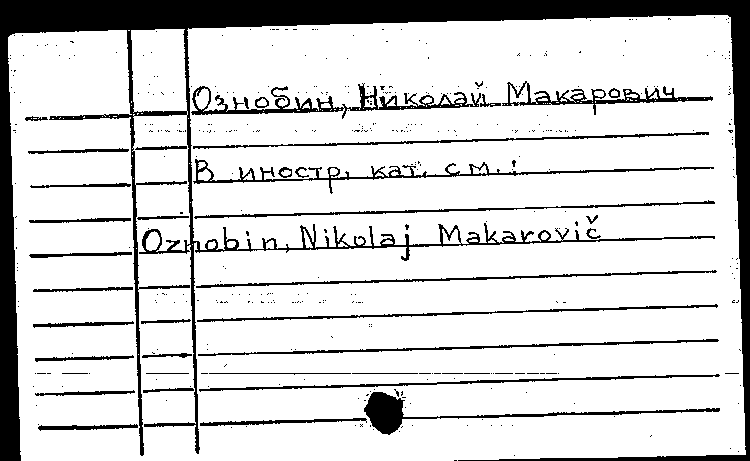 Ознобин, Николай Макарович
В иностр. кат. см.:
Oznobin, Nikolaj Makarovič